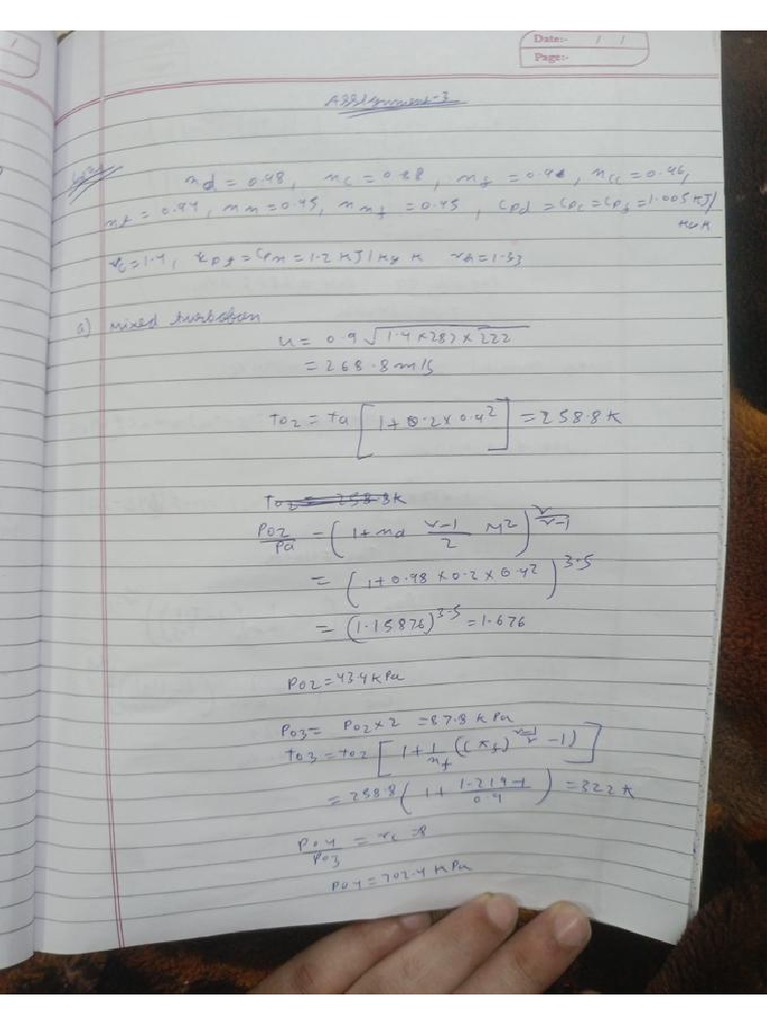 Date:- / /
Page:-
Assignment-I
ηd = 0.98, ηc = 0.88, ηf = 0.9, ηcc = 0.96,
ηt = 0.94, ηm = 0.95, ηnf = 0.95, Cpd = Cpc = Cpf = 1.005 KJ/
kgK
= 1.4, = 1.2 KJ/kg K = 1.33
a) mixed turbofan
u = 0.9 √1.4×287×222
= 268.8 m/s
To2 = Ta [1+0.2×0.92] = 258.8 K
To2 = 258.8K
Po2/Pa = (1+ηd γ-1/2 M2)γ/γ-1
= (1+0.98×0.2×0.92)3.5
= (1.15876)3.5 = 1.676
Po2 = 43.9 kPa
Po3 = Po2 × 2 = 87.8 kPa
To3 = To2 [1+1/ηf ((πf)γ-1/γ -1)]
= 258.8 (1+ 1.219-1/0.9) = 322 K
Po4/Po3 = = 8
Po4 = 702.4 kPa